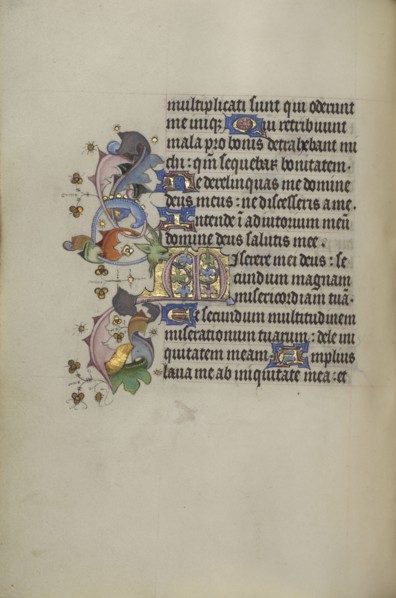 multiplicati sunt qui oderunt
me iniq; Qui retribuunt
mala pro bonis detrahebant mi
chi : qm̄ sequebar bonitatem.
Ne derelinquas me domine
deus meus : ne discesseris a me.
Intende ī adiutorium meū
domine deus salutis mee.
Miserere mei deus : se
cundum magnam
misericordiam tuā.
Et secundum multitudinem
miserationum tuarum : dele ini
quitatem meam. Amplius
laua me ab iniquitate mea : et